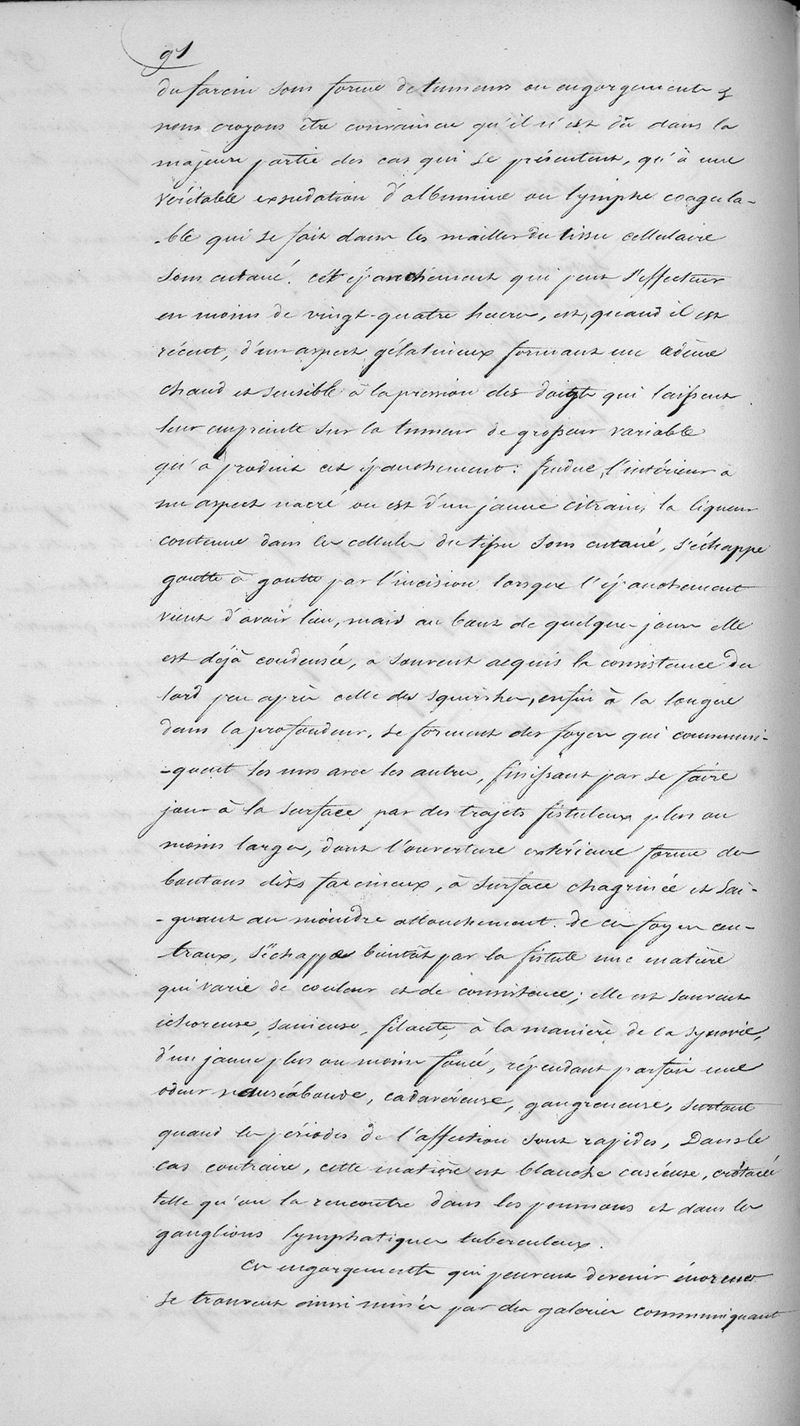 91
du farcin sous forme de tumeurs ou engorgements &
nous croyons être convaincu qu'il n'est dû dans la
majeure partie des cas qui se présentent, qu'à une
véritable exsudation d'albumine ou lymphe coagula-
-ble qui se fait dans les mailles du tissu cellulaire
sous cutané. cet épanchement qui peut s'effectuer
en moins de vingt-quatre heures, est, quand il est
récent, d'un aspect gélatineux formant un œdème
chaud et sensible à la pression des doigts qui laissent
leur empreinte sur la tumeur de grosseur variable
qu'a produit cet épanchement: fendue, l'intérieur a
un aspect nacré ou est d'un jaune citrain, la liqueur
contenue dans les cellules du tissu sous cutané, s'échappe
goutte à goutte par l'incision lorsque l'épanchement
vient d'avoir lieu, mais au bout de quelques jours elle
est déjà condensée, a souvent acquis la consistance du
lard peu après celle des squirrhes, enfin à la longue
dans la profondeur, se forment des foyers qui communi-
-quent les uns avec les autres, finissant par se faire
jour à la surface par des trajets fistuleux plus ou
moins larges, dont l'ouverture extérieure forme des
boutons dits farcineux, à surface chagrinée et sai-
-gnant au moindre attouchement. de ces foyers cen-
-traux, s'échappe bientôt par la fistule une matière
qui varie de couleur et de consistence; elle est souvent
ichoreuse, sanieuse, filante, à la manière de la synovie,
d'un jaune plus ou moins foncé, répendant parfois une
odeur nauséabonde, cadavéreuse, gangreneuse, surtout
quand les périodes de l'affection sont rapides, Dans le
cas contraire, cette matière est blanche caséeuse, crétacée
telle qu'on la rencontre dans les poumons et dans les
ganglions lymphatiques tuberculeux.
Ces engorgements qui peuvent devenir énormes
se trouvent ainsi minés par des galeries communiquant